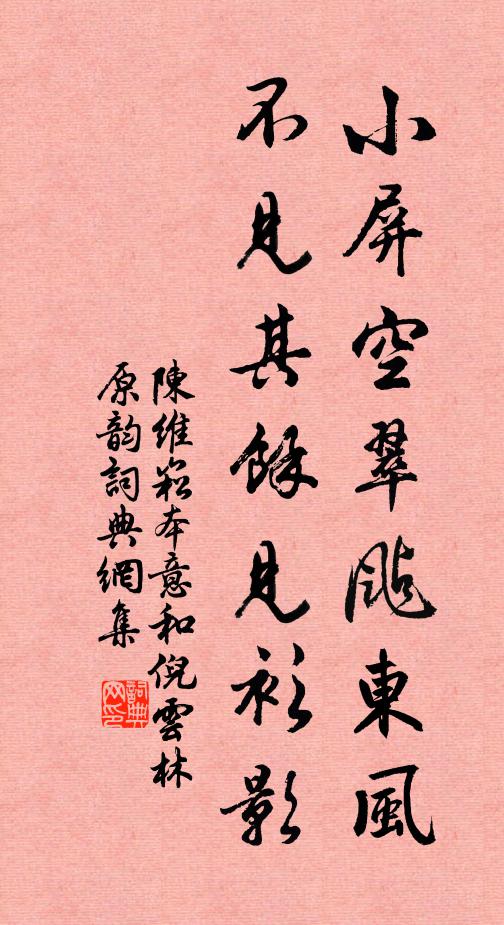 小屏空翠颭東風
不見其餘見衫影
陳維崧本意和倪雲林
原韵詞典網集
詞典网印